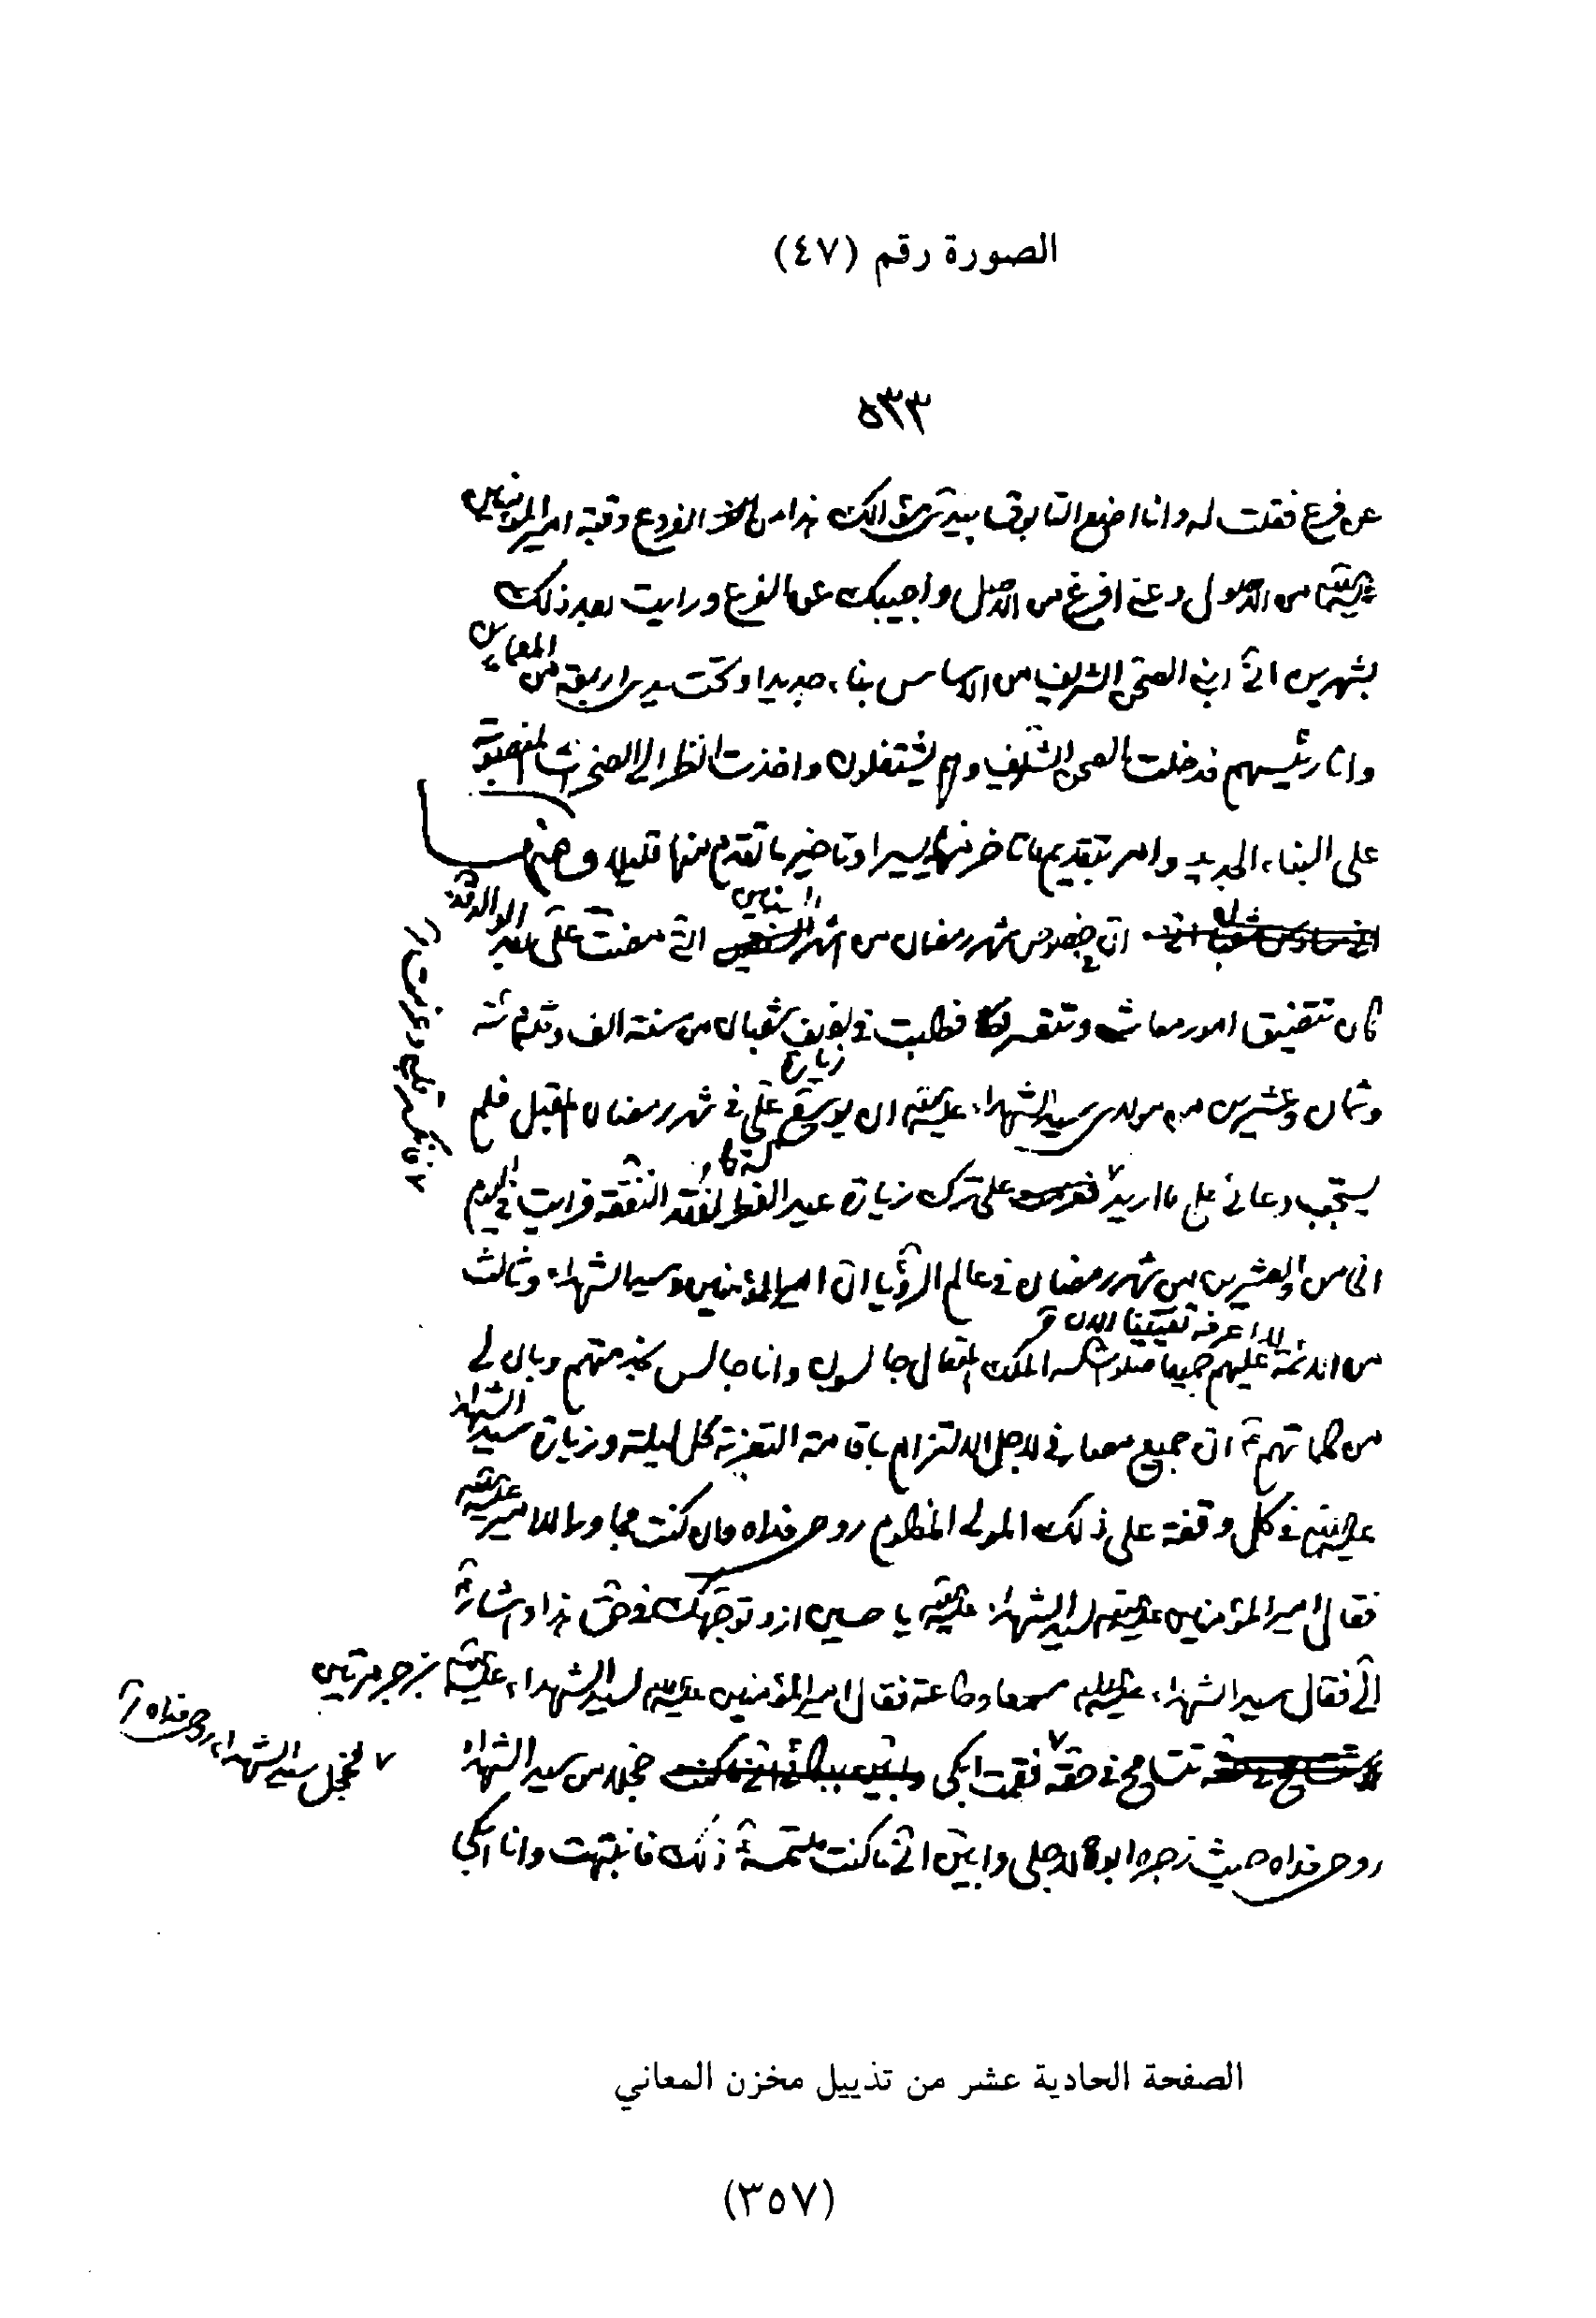 الصورة رقم (٤٧)
٥٣٣
عن فرع فقلت له وانا اضع التابوت بيد مرتق الك هذا من الفروع وقبة امير المؤمنين
من الاصول دعني افرغ من الاصل واجيبك عن الفرع ورايت بعد ذلك
بشهرين انّي ابني الصحن الشريف من الاساس بناء جديدا وتحت يدي اربعة من المعمارين
وانا رئيسهم فدخلت الصحن الشريف وهم يشتغلون واخذت انظر الى الصخرات المنصوبة
على البناء الجديد وامر بتقديم ما تاخر منها يسيرا وتاخير ما تقدم منها قليلا
انّ في خصوص شهر رمضان من اشهر السنين التي مضت عليّ بعد الوالد
كان تتضيق امور معاشي فطلبت في شعبان من سنة الف وثلثمائة
وثمان وعشرين من مولاي سيد الشهداء عليه السلام ان يوسع عليّ في شهر رمضان المقبل فلم
يستجب دعائي على ما اريد على ترك زيارة عيد الفطر لفقد النفقة فرايت في اليوم
الخامس والعشرين من شهر رمضان في عالم الرؤيا انّ امير المؤمنين وسيد الشهداء وثالث
لا اعرفه تعيينا الان
من الائمة عليهم جميعا صلوات الله الملك المتعال جالسون وانا جالس بخدمتهم وبان لي
من كلماتهم انّ جميع مصارفي لاجل الالتزام باقامة التعزية كل ليلة وزيارة سيد الشهداء
في كل وقفة على ذلك المولى المظلوم روحي فداه وان كنت مجاورا للامير عليه السلام
فقال امير المؤمنين عليه السلام لسيد الشهداء عليه السلام يا حسين ازدد توجهك في حق هذا واشار
اليّ فقال سيد الشهداء عليه السلام سمعا وطاعة فقال امير المؤمنين عليه السلام لسيد الشهداء عليه السلام بزجر مرتين
تتسامح في حقه فقمت ابكي خجلا من سيد الشهداء
روحي فداه حيث زجره ابوه لاجلي وابيّن انّي ما كنت ملتمسا ذلك فانتبهت وانا ابكي
الصفحة الحادية عشر من تذييل مخزن المعاني
(٣٥٧)